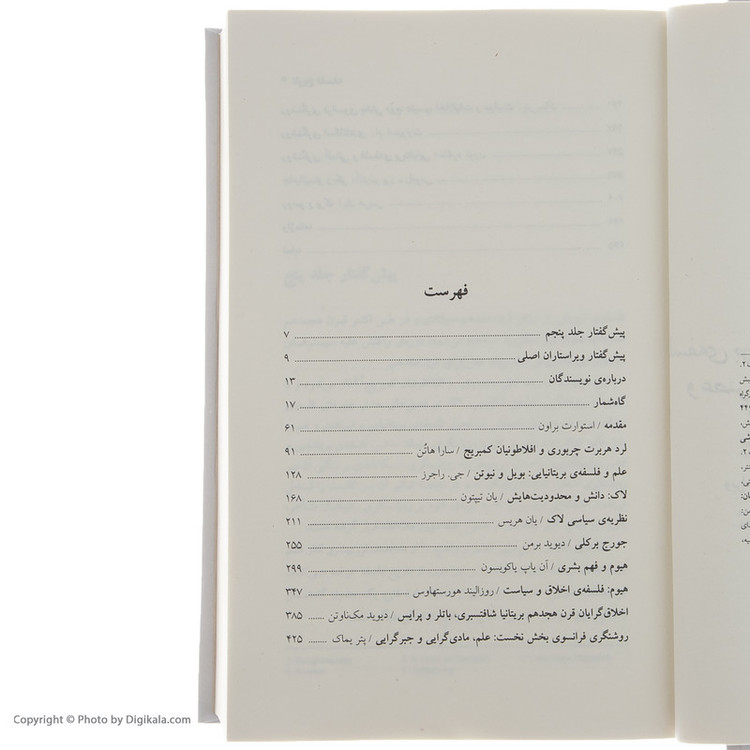 فهرست
پیش‌گفتار جلد پنجم ........ ۷
پیش‌گفتار ویراستاران اصلی ........ ۹
درباره‌ی نویسندگان ........ ۱۳
گاه‌شمار ........ ۱۷
مقدمه / استوارت براون ........ ۶۱
لرد هربرت چربوری و افلاطونیان کمبریج / سارا هاتُن ........ ۹۱
علم و فلسفه‌ی بریتانیایی: بویل و نیوتن / جی. راجرز ........ ۱۲۸
لاک: دانش و محدودیت‌هایش / یان تیپتون ........ ۱۶۸
نظریه‌ی سیاسی لاک / یان هریس ........ ۲۱۱
جورج برکلی / دیوید برمن ........ ۲۵۵
هیوم و فهم بشری / آن یاپ یاکوبسون ........ ۲۹۹
هیوم: فلسفه‌ی اخلاق و سیاست / روزالیند هورستهاوس ........ ۳۴۷
اخلاق‌گرایان قرن هجدهم بریتانیا شافتسبری، باتلر و پرایس / دیوید مک‌ناوتن ........ ۳۸۵
روشنگری فرانسوی بخش نخست: علم، مادی‌گرایی و جبرگرایی / پتر یماک ........ ۴۲۵
Copyright © Photo by Digikala.com